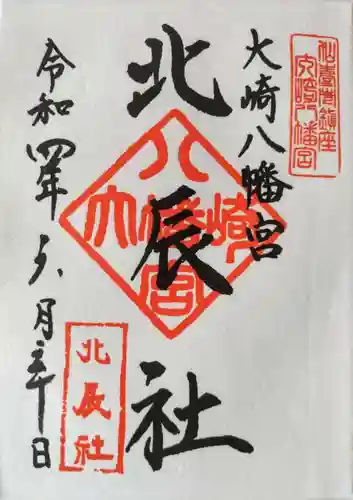 仙臺市鎮座
大崎八幡宮
大崎八幡宮
北辰社
八
大幡崎
宮
令和四年六月三十日
北辰社